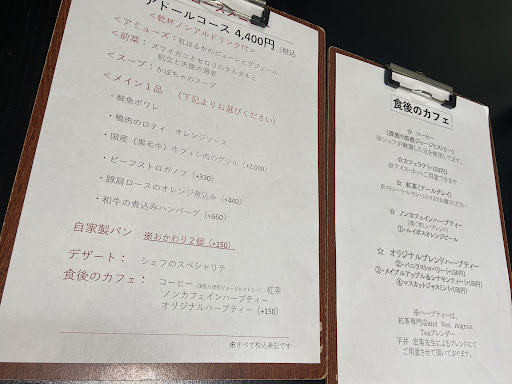 アドールコース 4,400円（税込
＜乾杯ノンアルドリンク付＞
＜アミューズ：紅はるかのピューレとグジェール
＜前菜： ズワイガニとセロリのタルタルと
帆立と天使の海老
＜スープ：かぼちゃのスープ
＜メイン１品 （下記よりお選びください）
・鮮魚ポワレ
・鴨肉のロティ オレンジソース
・国産（黒毛牛）牛フィレ肉のグリル（+2,000）
・ビーフストロガノフ（+330）
・豚肩ロースのオレンジ煮込み（+440）
・和牛の煮込みハンバーグ（+660）
自家製パン ※おかわり２個（+150）
デザート： シェフのスペシャリテ
食後のカフェ： コーヒー 紅茶
ノンカフェインハーブティー
オリジナルハーブティー（+150）
※すべて税込表記です
食後のカフェ
☆ コーヒー
※シェフが厳選した豆を使用してます。
☆カフェラテ（+150円）
※アイス・ホットご用意できます
☆ 紅茶（アールグレイ）
☆ ノンカフェインハーブティー
①・ルイボスオレンジピール
☆ オリジナルブレンドハーブティー
②・バニラストロベリー（+150円）
③・メイプルアップル＆シナモンティー（+150円）
④マスカットジャスミン（+150円）
※ハーブティーは、
紅茶専門店and Basi mignon
Teaブレンダー
平井 宏美先生によるブレンドにて
ご用意させて頂いております。